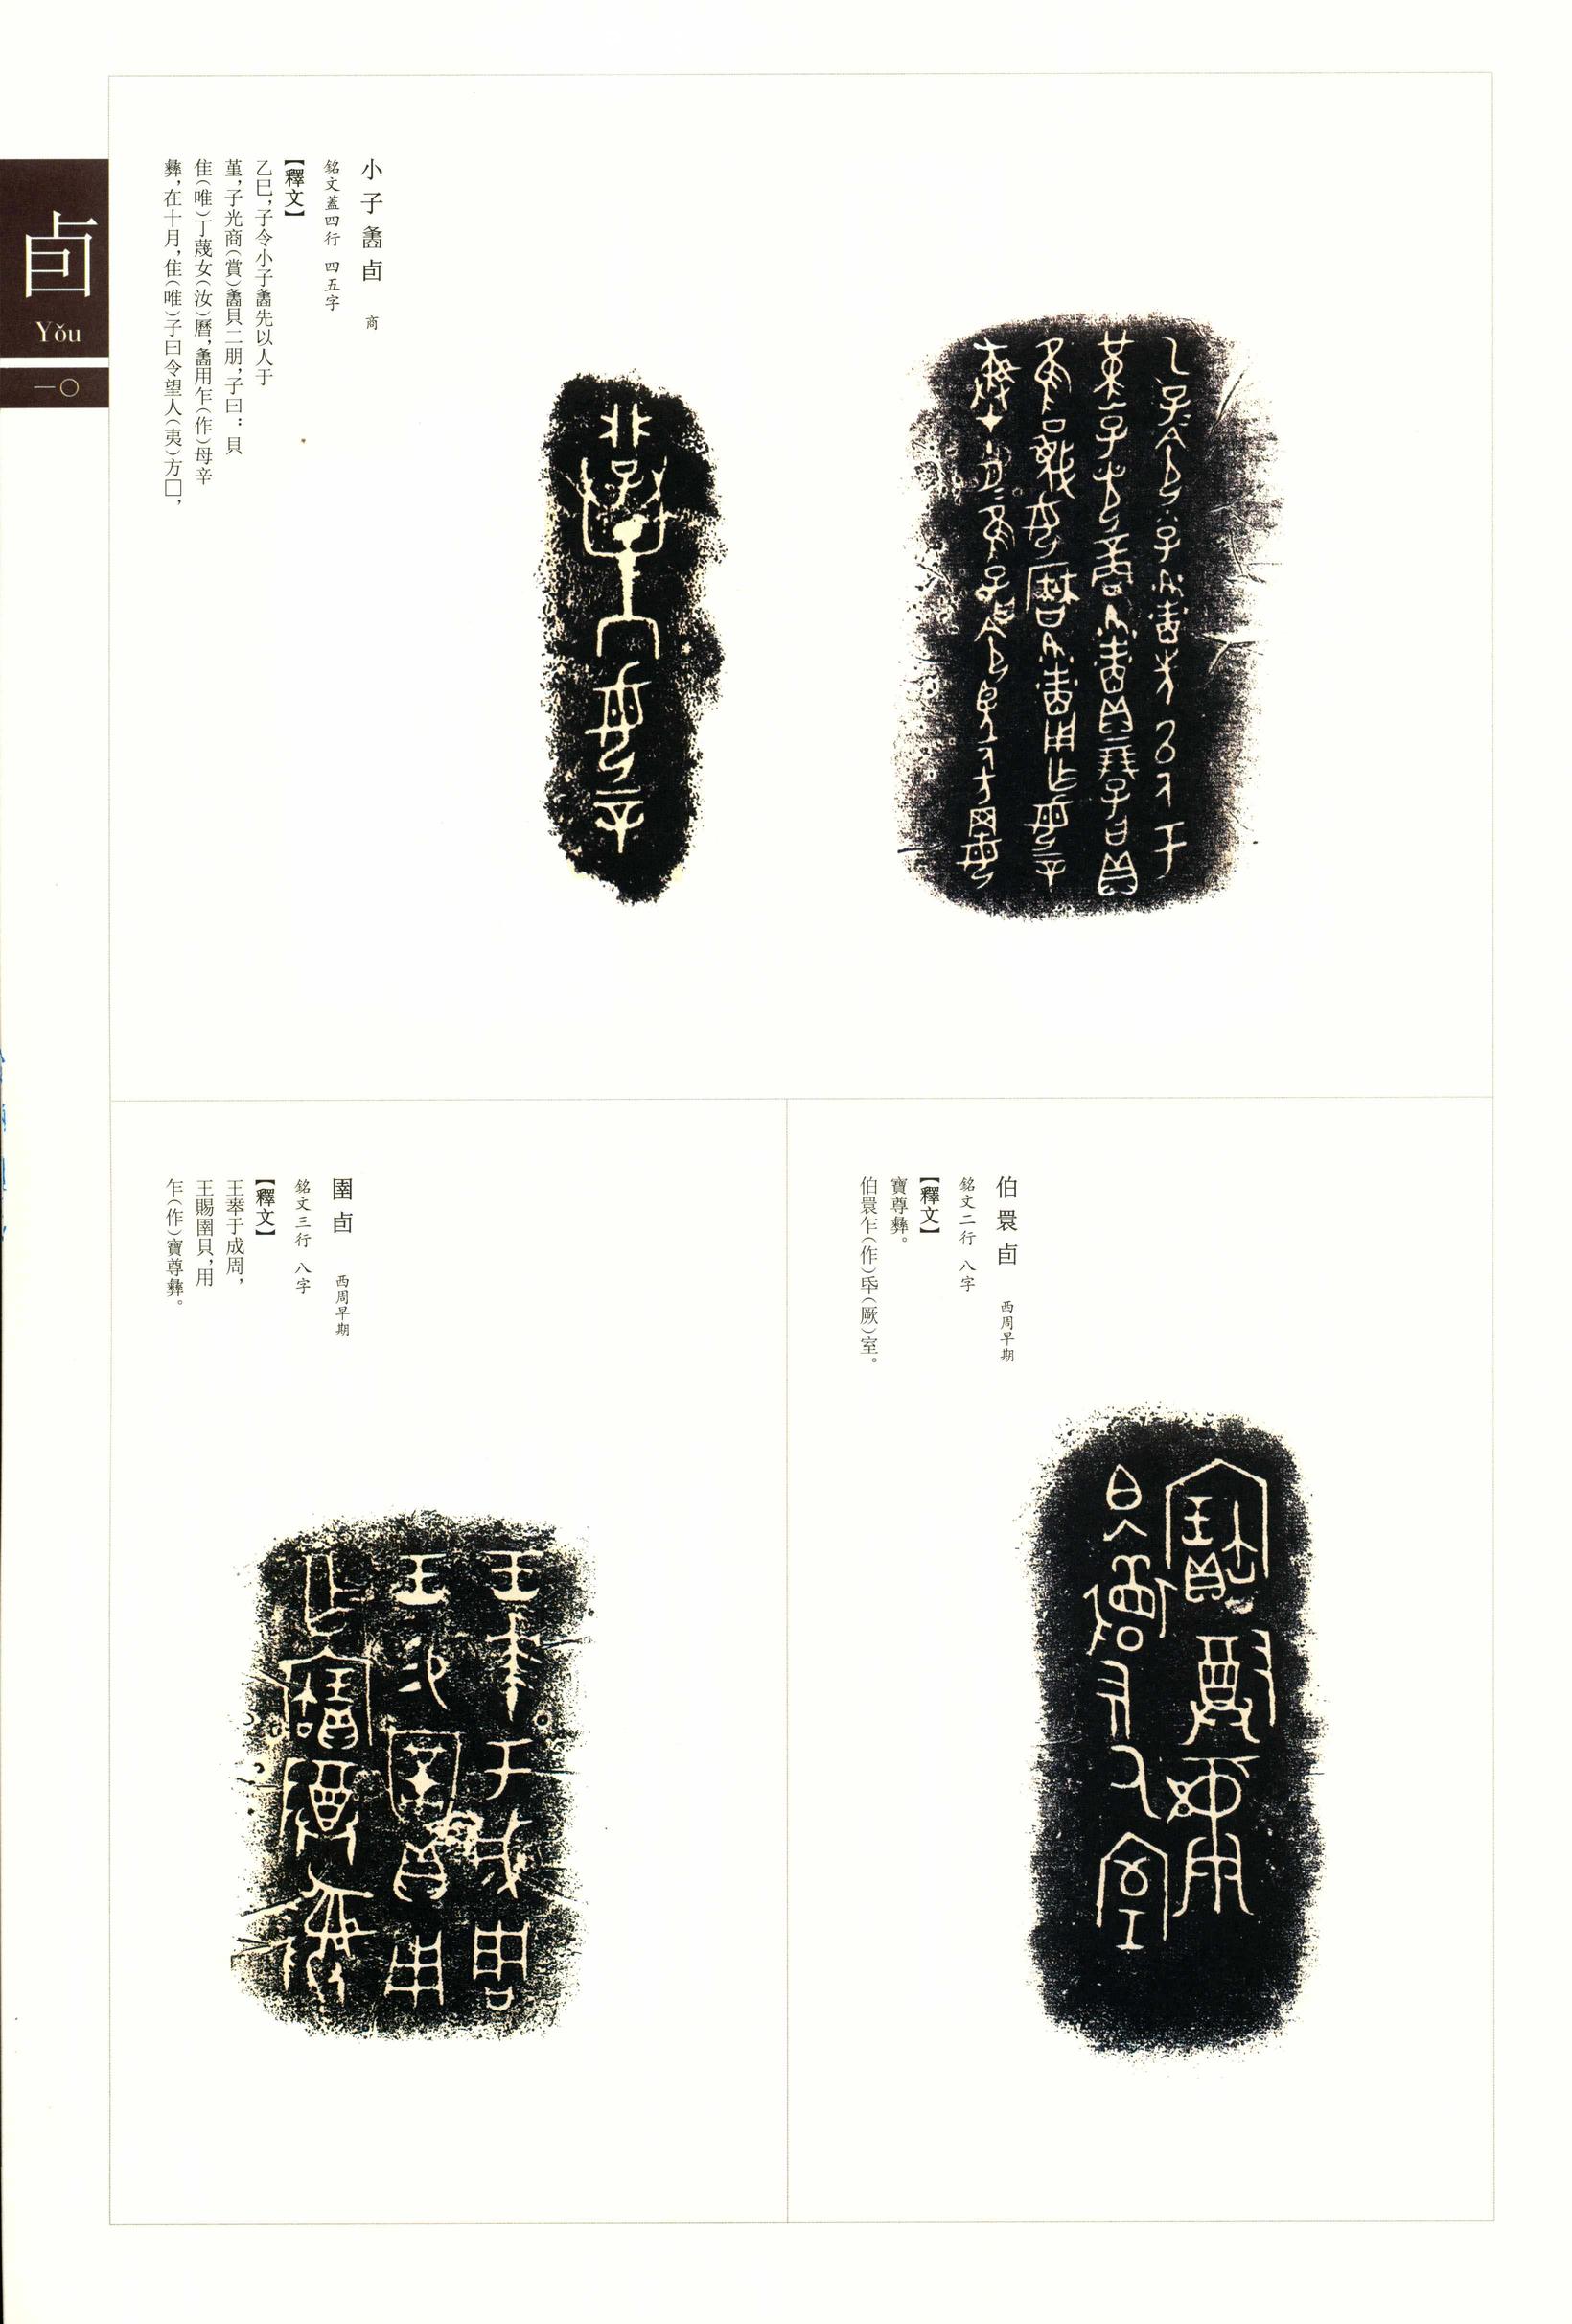 卣
Yǒu
一〇
小子䚄卣 商
銘文蓋四行 四五字
【釋文】
乙巳，子令小子䚄先以人于
堇，子光商（賞）䚄貝二朋，子曰：貝
隹（唯）丁蔑女（汝）曆，䚄用乍（作）母辛
彝，在十月，隹（唯）子曰令望人（夷）方□，
伯睘卣 西周早期
銘文二行 八字
【釋文】
寶尊彝。
伯睘乍（作）氒（厥）室。
圉卣 西周早期
銘文三行 八字
【釋文】
王𠦪于成周，
王賜圉貝，用
乍（作）寶尊彝。